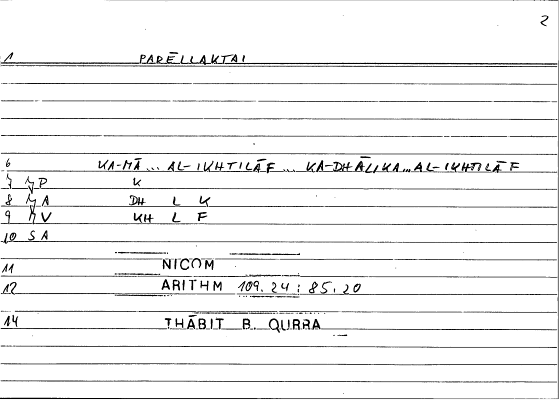 2
1 PARĒLLAKTAI
6 KA-MĀ ... AL-IKHTILĀF ... KA-DHĀLIKA...AL-IKHTILĀF
P K
8 A DH L K
9 V KH L F
10 S A
11 NICOM
12 ARITHM 109.24 : 85.20
14 THĀBIT B. QURRA